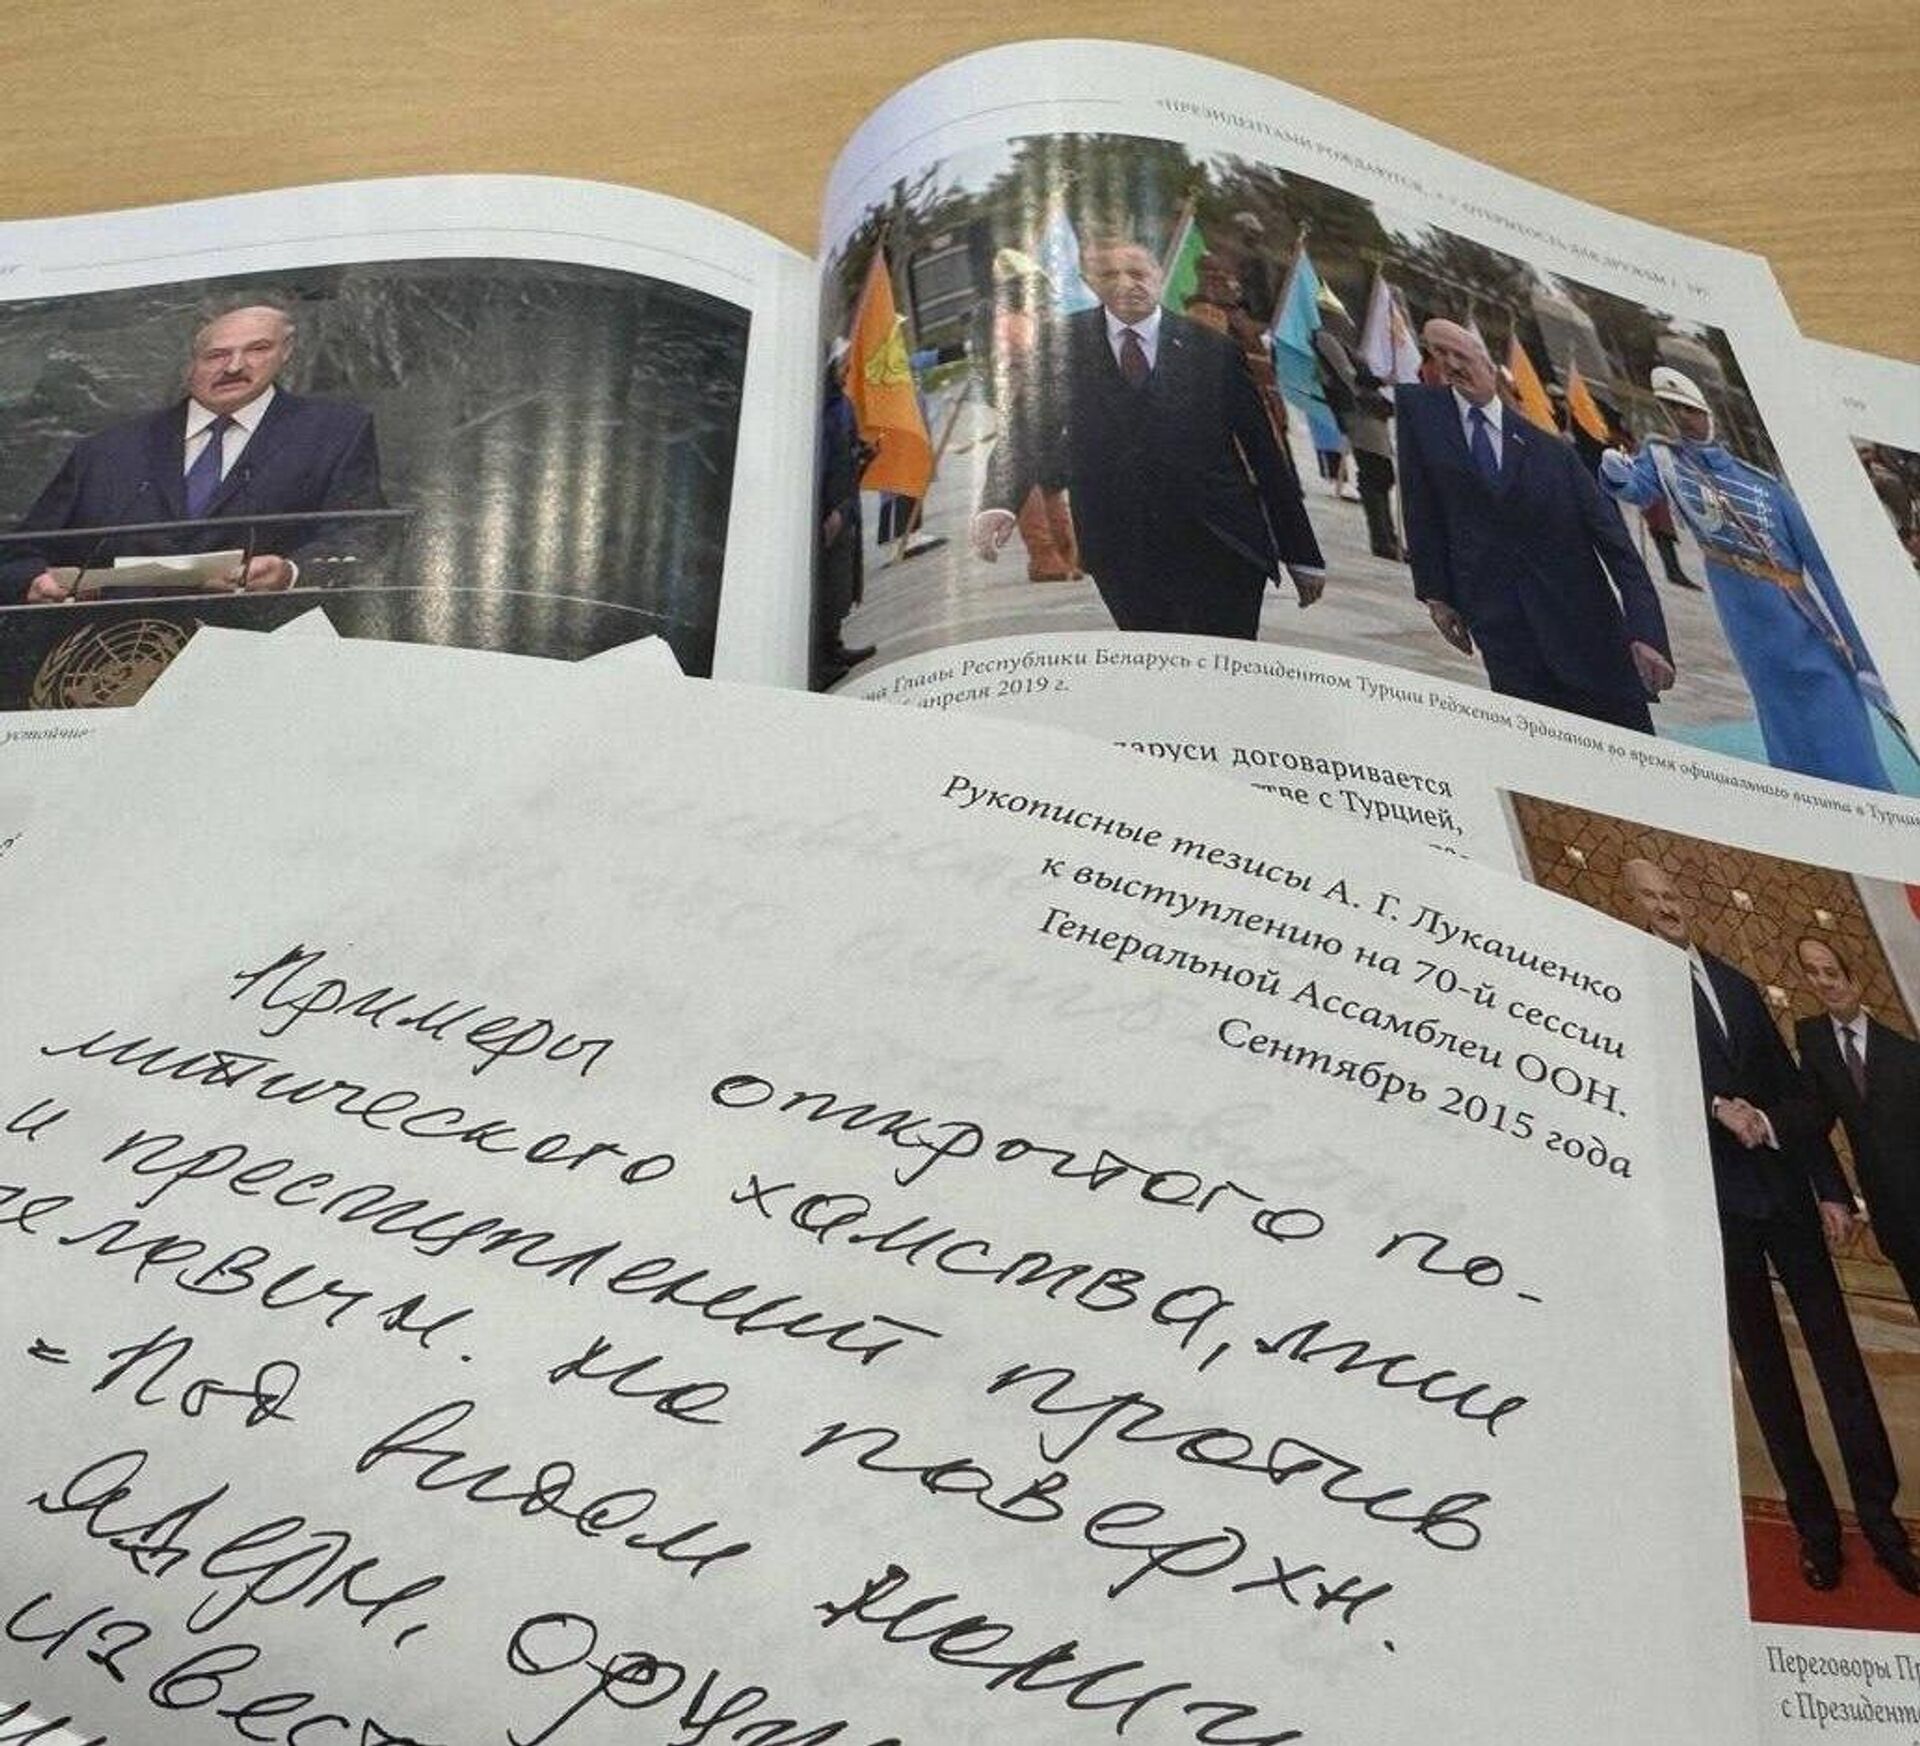 «ПРЕЗИДЕНТАМИ РОЖДАЮТСЯ...» / ОТКРЫТОСТЬ ДЛЯ ДРУЖБЫ / 197
199
на Главы Республики Беларусь с Президентом Турции Реджепом Эрдоганом во время официального визита в Турци
апреля 2019 г.
устойчив
аруси договаривается
тве с Турцией,
Рукописные тезисы А. Г. Лукашенко
к выступлению на 70-й сессии
Генеральной Ассамблеи ООН.
Сентябрь 2015 года
Примеры открытого по-
литического хамства, лжи
и преступлений против
человечн. на поверхн.
= Под видом
ядерн. оруж
извест
Переговоры Пр
с Президент